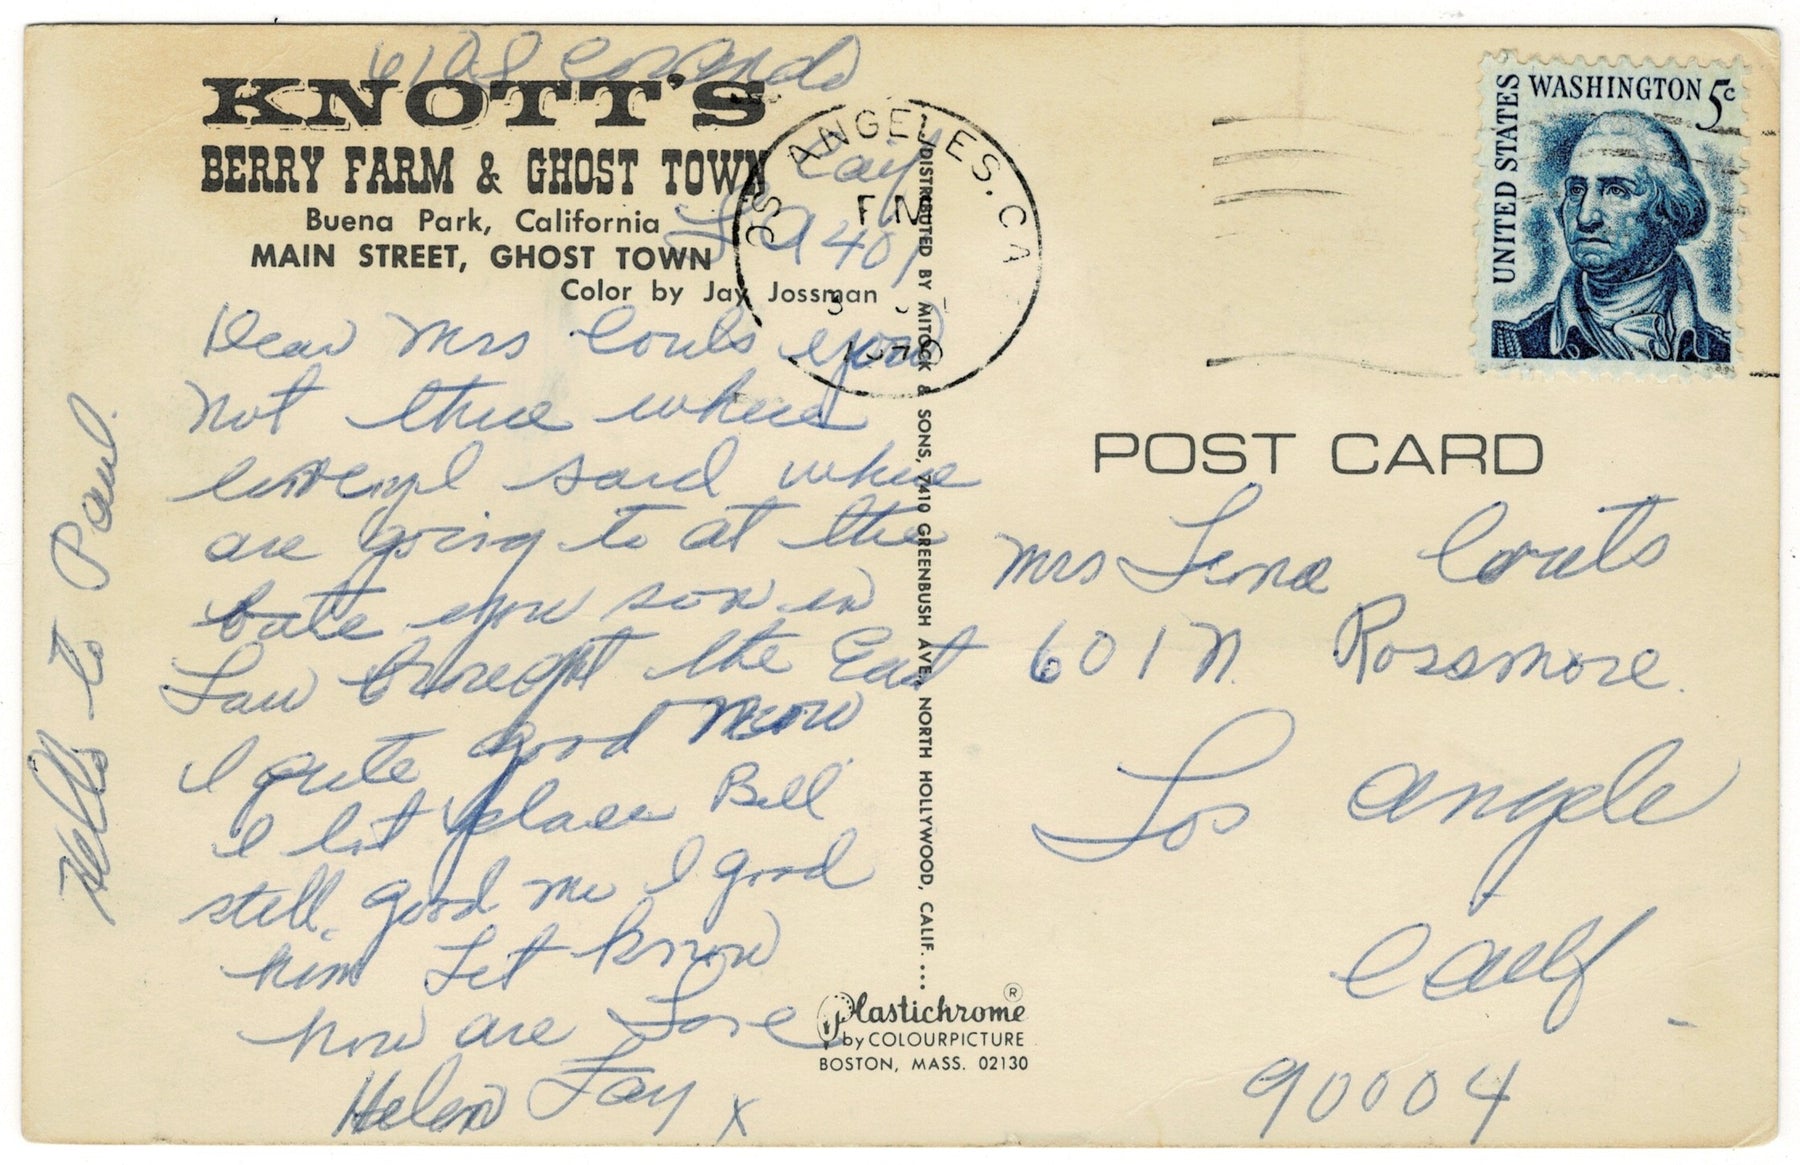 KNOTT'S
BERRY FARM & GHOST TOWN
Buena Park, California
MAIN STREET, GHOST TOWN
Color by Jay Jossman
Dear Mrs Couts your
not there where
said where
are going to at the
bate you son in
Law the East
I quite good now
I lot place Bill
still good me I good
him Let know
how are Love
Helen Fay x
Hello to Paul.
LOS ANGELES, CA
PM
DISTRIBUTED BY MITOCK & SONS, 7410 GREENBUSH AVE. NORTH HOLLYWOOD, CALIF. ...
Plastichrome ®
by COLOURPICTURE
BOSTON, MASS. 02130
UNITED STATES
WASHINGTON 5c
POST CARD
Mrs Lena Couts
601 N. Rossmore.
Los Angele
Calif
90004